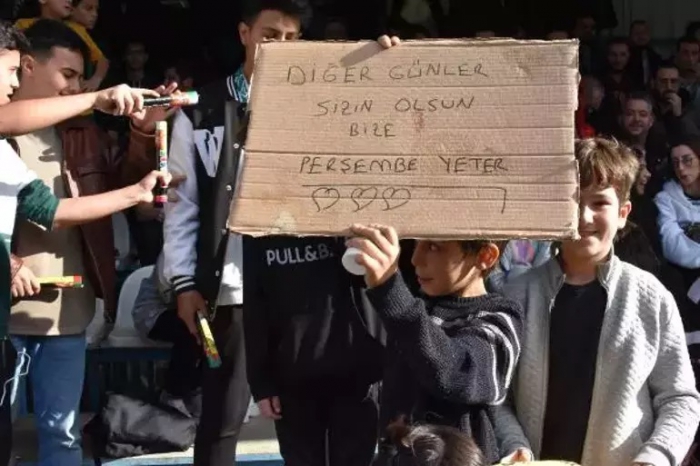 DİĞER GÜNLER
SİZİN OLSUN
BİZE
PERŞEMBE YETER
PULL&B
W